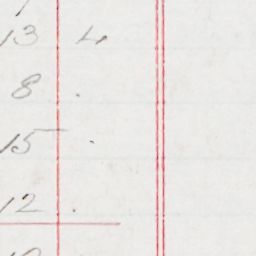 13 4
8 .
15 .
12 .